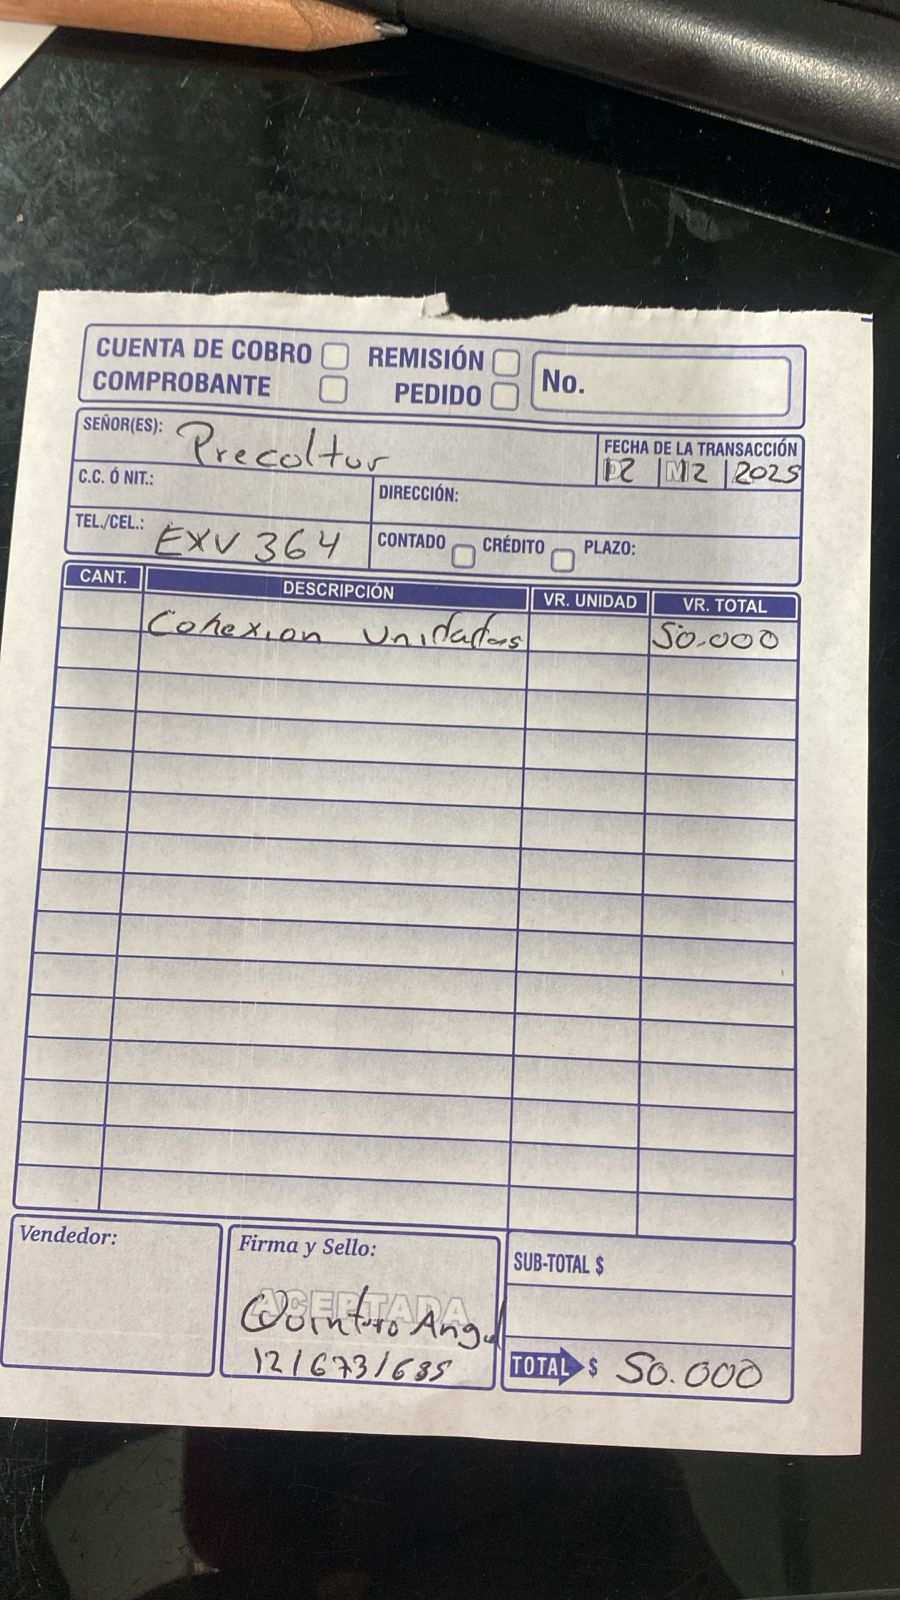 CUENTA DE COBRO REMISIÓN No.
COMPROBANTE PEDIDO
SEÑOR(ES): Precoltur
FECHA DE LA TRANSACCIÓN
2 | 2 | 2025
C.C. Ó NIT.:
DIRECCIÓN:
TEL./CEL.: EXV 364
CONTADO CRÉDITO PLAZO:
CANT. DESCRIPCIÓN VR. UNIDAD VR. TOTAL
Conexion Unidades 50.000
Vendedor:
Firma y Sello:
SUB-TOTAL $
ACEPTADA
Quintero Angel
121673/685
TOTAL $ 50.000